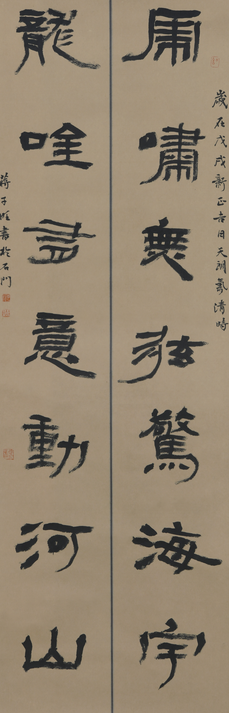 歲在戊戌新正吉日天朗氣清時
虎嘯無弦驚海宇
龍唫意動河山
蔣子書於石門